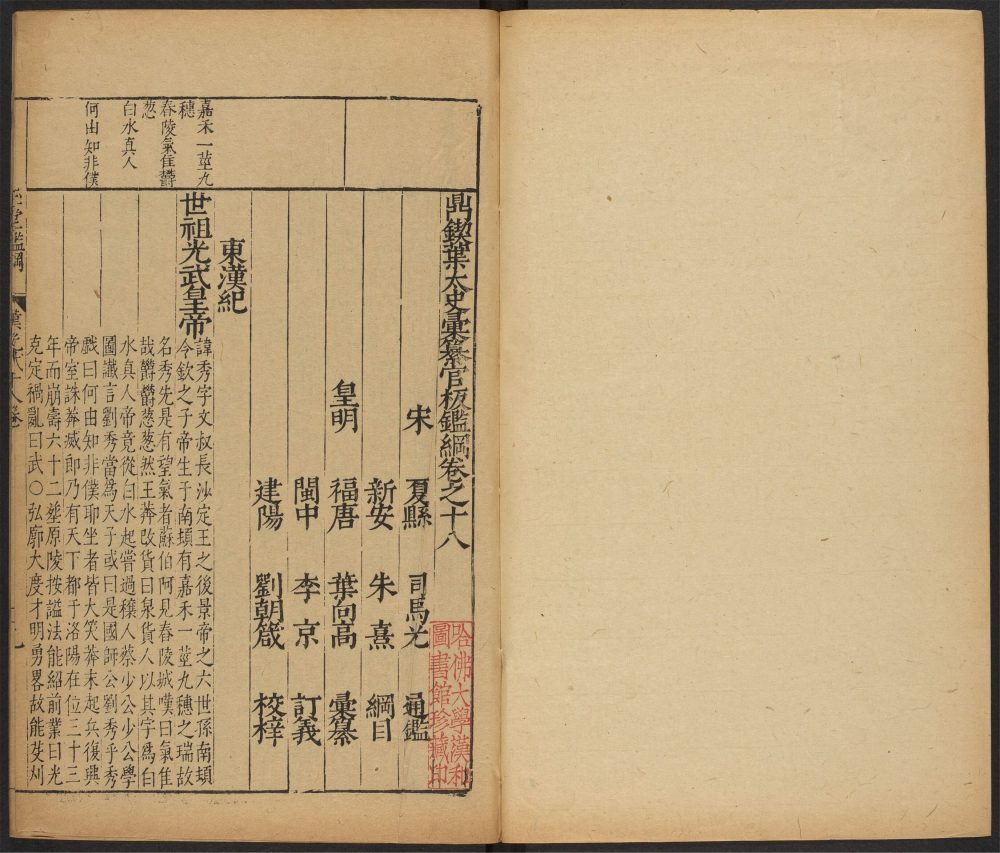 鼎鍥葉太史彙纂官板鑑綱卷之十八
宋 夏縣 司馬光 通鑑
新安 朱熹 綱目
皇明 福唐 葉向高 彙纂
閩中 李京 訂義
建陽 劉朝箴 校梓
東漢紀
世祖光武皇帝
諱秀字文叔長沙定王之後景帝之六世孫南頓
令欽之子帝生于南頓有嘉禾一莖九穗之瑞故
名秀先是有望氣者蘇伯阿見舂陵城嘆曰氣佳
哉欝欝葱葱然王莽改貨曰泉貨人以其字爲白
水真人帝竟從白水起嘗過穰人蔡少公少公學
圖讖言劉秀當爲天子或曰是國師公劉秀乎秀
戲曰何由知非僕耶坐者皆大笑莽末起兵復興
帝室誅莽滅郎乃有天下都于洛陽在位三十三
年而崩壽六十二塟原陵按謚法能紹前業曰光
克定禍亂曰武○弘廓大度才明勇畧故能芟刈
嘉禾一莖九
穗
舂陵氣佳欝
葱
白水真人
何由知非僕
鑑綱
漢 十八卷
哈佛大學漢和
圖書館珍藏印